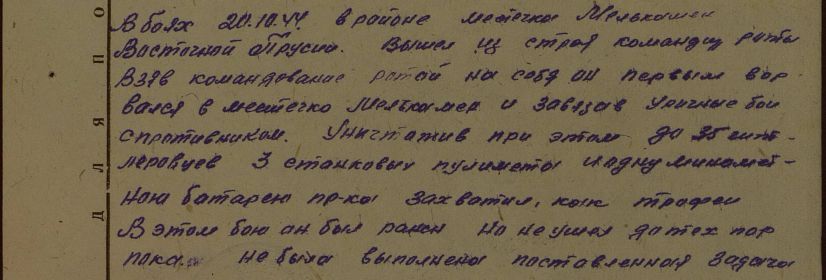 В боях 20.10.44. в районе местечка Мелькамен
Восточной Пруссии. Вышел из строя командир роты
Взяв командование ротой на себя он первым вор
вался в местечко Мелькамен и завязав уличные бои
с противником. Уничтожив при этом до 35 гит-
леровцев 3 станковых пулимета и одну миномет-
ною батарею пр-ка захватил, как трофеи
В этом бою он был ранен но не ушел до тех пор
пока не была выполнена поставленная задача
ДЛЯ ПО